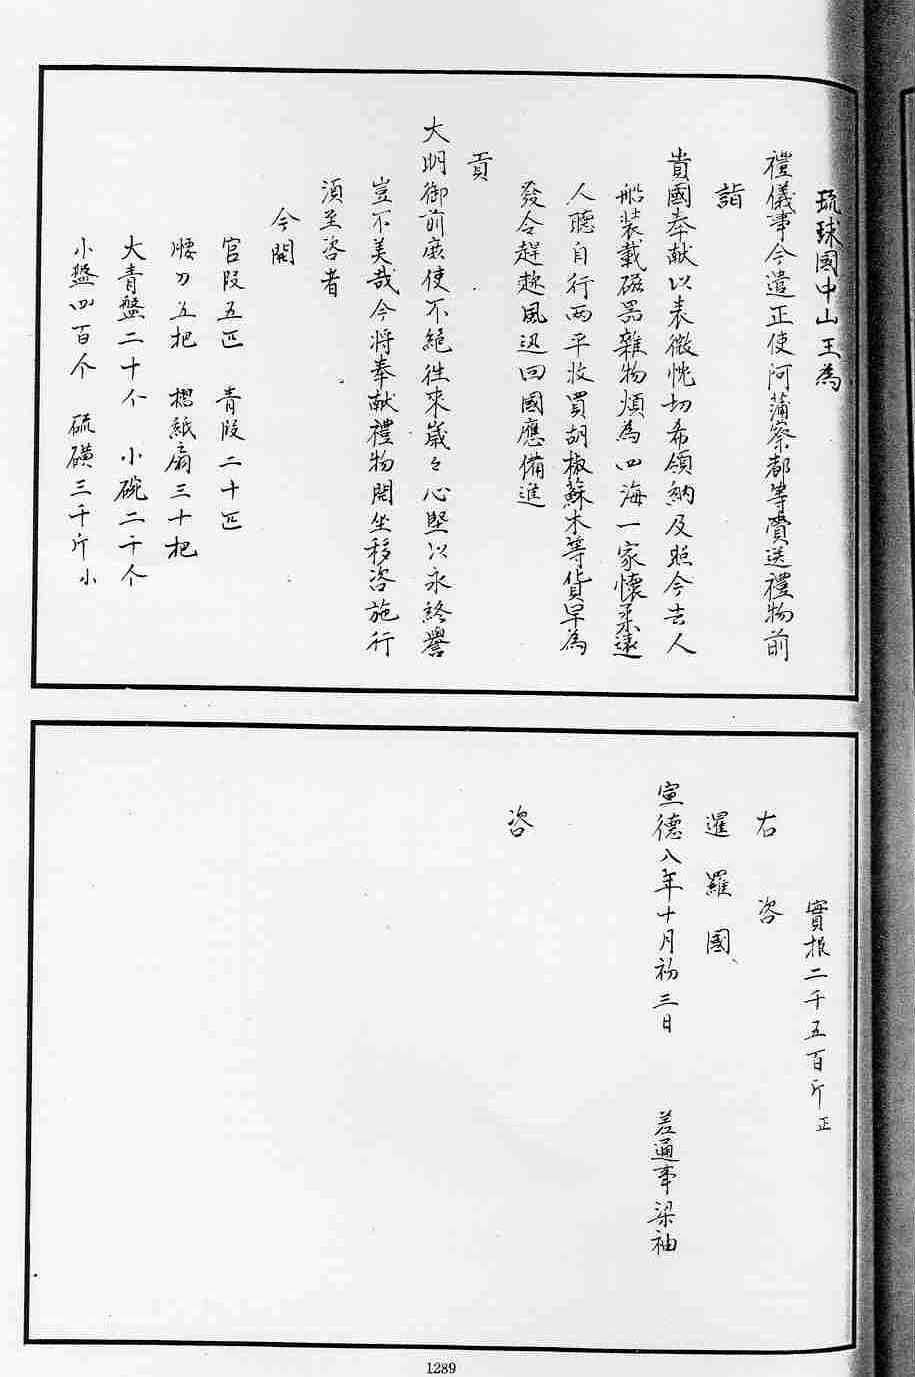 琉球國中山王為
禮儀事今遣正使阿蒲察都等賷送禮物前
詣
貴國奉献以表微忱切希領納及照今去人
船装載磁噐雜物煩為四海一家懷柔遠
人聽自行两平收買胡椒蘇木等貨早為
發令趕趂風迅囬國應備進
貢
大明御前庻使不絕徃來嵗々心堅以永終譽
豈不美哉今将奉献禮物開坐移咨施行
湏至咨者
今開
官段五匹 青段二十匹
腰刀五把 摺紙扇三十把
大青盤二十个 小碗二千个
小盤四百个 硫磺三千斤小
實報二千五百斤正
右咨
暹羅國
宣德八年十月初三日 差通事梁袖
咨
1289